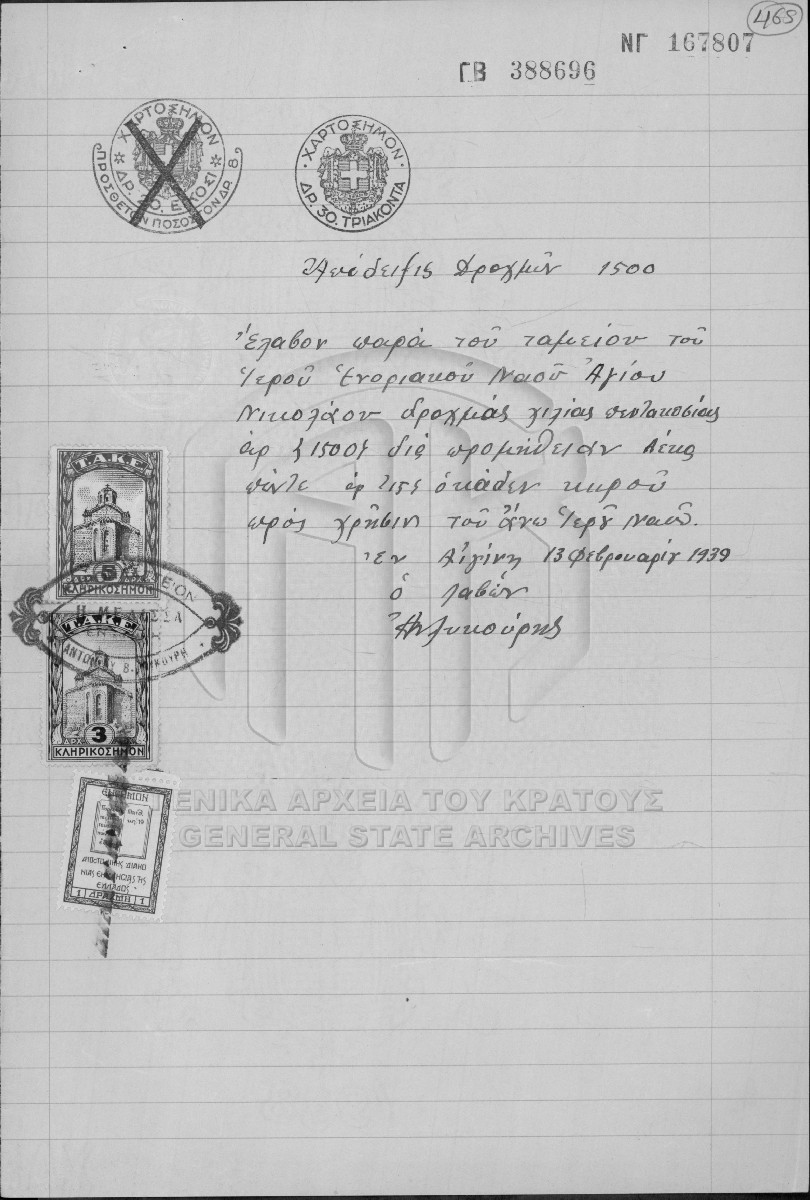 468
ΝΓ 167807
ΓΒ 388696
ΧΑΡΤΟΣΗΜΟΝ
ΔΡ. 20. ΕΙΚΟΣΙ
ΠΡΟΣΘΕΤΟΝ ΠΟΣΟΣΤΟΝ ΔΡ. 8
ΧΑΡΤΟΣΗΜΟΝ
ΔΡ. 30. ΤΡΙΑΚΟΝΤΑ
Ἀπόδειξις Δραχμῶν 1500
Ἔλαβον παρὰ τοῦ ταμείου τοῦ
Ἱεροῦ Ἐνοριακοῦ Ναοῦ Ἁγίου
Νικολάου δραχμάς χιλίας πεντακοσίας
ἀρ {1500} διὰ προμήθειαν δέκα
πέντε ἀρ {15} ὀκάδων κηροῦ
πρὸς χρῆσιν τοῦ ἄνω Ἱεροῦ Ναοῦ.
Ἐν Αἰγίνῃ 13 Φεβρουαρίου 1939
ὁ λαβών
Τ.Α.Κ.Ε.
5
ΚΛΗΡΙΚΟΣΗΜΟΝ
Η ΜΕΛΙΣΣΑ
ΑΝΤΩΝΙΟΥ Β.
Τ.Α.Κ.Ε.
3
ΚΛΗΡΙΚΟΣΗΜΟΝ
ΑΠΟΣΤΟΛΙΚΗΣ ΔΙΑΚΟ
ΝΙΑΣ ΕΚΚΛΗΣΙΑΣ ΤΗΣ
ΕΛΛΑΔΟΣ
1 ΔΡΑΧΜΗ 1
ΓΕΝΙΚΑ ΑΡΧΕΙΑ ΤΟΥ ΚΡΑΤΟΥΣ
GENERAL STATE ARCHIVES